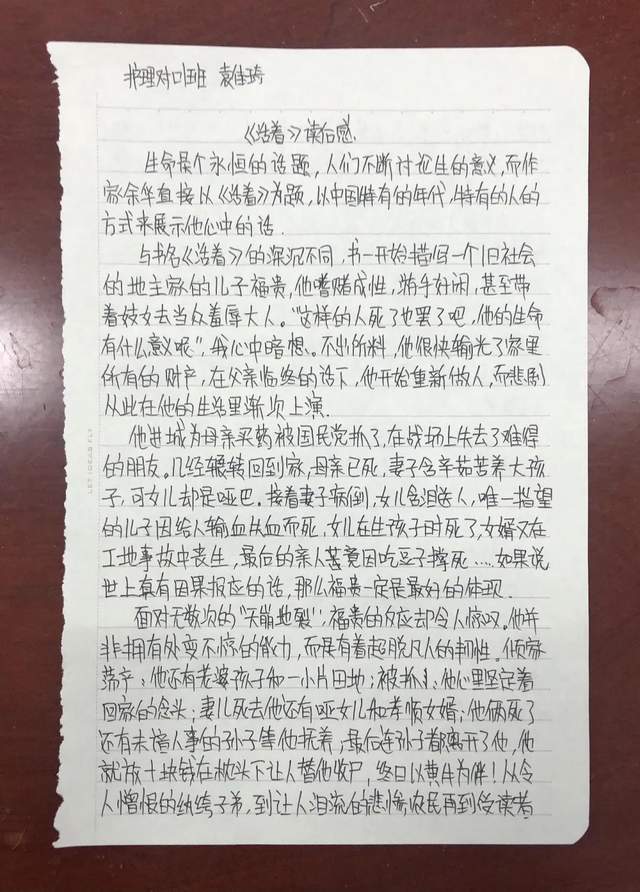 护理对口班 袁佳琦
《活着》读后感.
生命是个永恒的话题,人们不断讨论生的意义,而作
家余华直接以《活着》为题,以中国特有的年代,特有的人的
方式来展示他心中的话.
与书名《活着》的深沉不同,书一开始描写一个旧社会
的地主家的儿子福贵,他嗜赌成性,游手好闲,甚至带
着妓女去当众羞辱丈人。“这样的人死了也罢了吧,他的生命
有什么意义呢”,我心中暗想。不出所料,他很快输光了家里
所有的财产,在父亲临终的话下,他开始重新做人,而悲剧
从此在他的生活里渐次上演.
他进城为母亲买药被国民党抓了,在战场上失去了难得
的朋友。几经辗转回到家,母亲已死,妻子含辛茹苦养大孩
子,可女儿却是哑巴。接着妻子病倒,女儿含泪送人,唯一指望
的儿子因给人输血失血而死,女儿在生孩子时死了,女婿又在
工地事故中丧生,最后的亲人甚竟因吃豆子撑死....如果说
世上真有因果报应的话,那么福贵一定是最好的体现.
面对无数次的“天崩地裂”,福贵的反应却令人惊叹。他并
非拥有处变不惊的能力,而是有着超脱凡人的韧性。倾家
荡产:他还有老婆孩子和一小片田地;被抓:他心里坚定着
回家的念头;妻儿死去他还有哑女儿和孝顺女婿;他俩死了
还有未谙人事的孙子等他抚养;最后连孙子都离开了他,他
就放十块钱在枕头下让人替他收尸,终日以黄牛为伴!从令
人憎恨的纨绔子弟,到让人泪流的悲惨农民再到受读者
LET IDEAS FLY